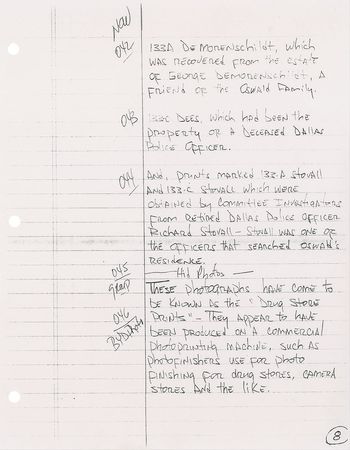 Now
042
133A DeMorenschildt, which
was recovered from the estate
of George DeMorenschildt, a
friend of the Oswald Family.
043
133C Dees, which had been the
property of a deceased Dallas
Police Officer.
044
And, prints marked 133-A Stovall
and 133-C Stovall which were
obtained by Committee Investigators
from retired Dallas Police Officer
Richard Stovall - Stovall was one of
the officers that searched Oswald's
residence.
045
Hid Photos
These photographs have come to
be known as the "Drug Store
Prints" - They appear to have
046
been produced on a commercial
photoprinting machine, such as
photofinishers use for photo
finishing for drug stores, camera
stores and the like.
8